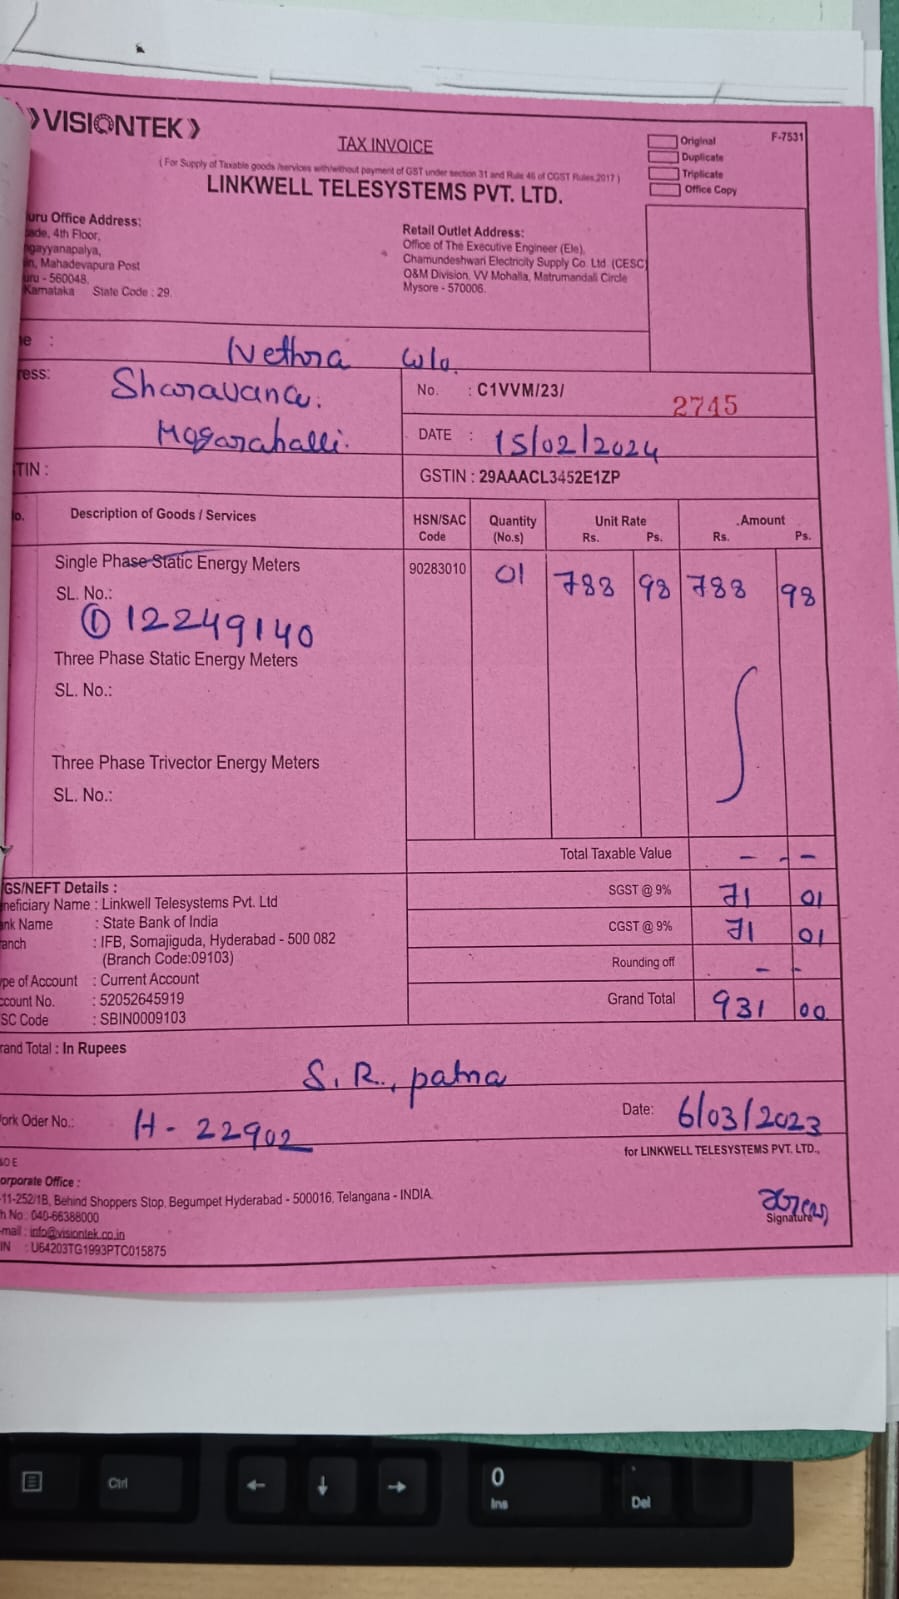 VISIONTEK
TAX INVOICE
( For Supply of Taxable goods /services with/without payment of GST under section 31 and Rule 46 of CGST Rules,2017 )
LINKWELL TELESYSTEMS PVT. LTD.
Original
Duplicate
Triplicate
Office Copy
F-7531
uru Office Address:
ade, 4th Floor,
gayyanapalya,
in, Mahadevapura Post
uru - 560048.
Karnataka State Code : 29.
Retail Outlet Address:
Office of The Executive Engineer (Ele),
Chamundeshwari Electricity Supply Co. Ltd. (CESC)
O&M Division, VV Mohalla, Matrumandali Circle
Mysore - 570006.
e : Nethra w/o.
ress: Sharavana.
Mogarahalli.
No. : C1VVM/23/ 2745
DATE : 15/02/2024
TIN :
GSTIN : 29AAACL3452E1ZP
o. Description of Goods / Services HSN/SAC Code Quantity (No.s) Unit Rate Rs. Ps. Amount Rs. Ps.
Single Phase Static Energy Meters 90283010 01 788 98 788 98
SL. No.:
① 12249140
Three Phase Static Energy Meters
SL. No.:
Three Phase Trivector Energy Meters
SL. No.:
Total Taxable Value - - -
GS/NEFT Details :
neficiary Name : Linkwell Telesystems Pvt. Ltd
ank Name : State Bank of India
anch : IFB, Somajiguda, Hyderabad - 500 082
(Branch Code:09103)
ype of Account : Current Account
ccount No. : 52052645919
SC Code : SBIN0009103
SGST @ 9% 71 01
CGST @ 9% 71 01
Rounding off - -
Grand Total 931 00
rand Total : In Rupees
S. R., patna
ork Oder No.: H - 22902 Date: 6/03/2023
for LINKWELL TELESYSTEMS PVT. LTD.,
& O E
orporate Office :
-11-252/1B, Behind Shoppers Stop, Begumpet Hyderabad - 500016, Telangana - INDIA.
h No : 040-66388000
-mail : info@visiontek.co.in
IN : U64203TG1993PTC015875
Signature
Ctrl
0
Ins
.
Del